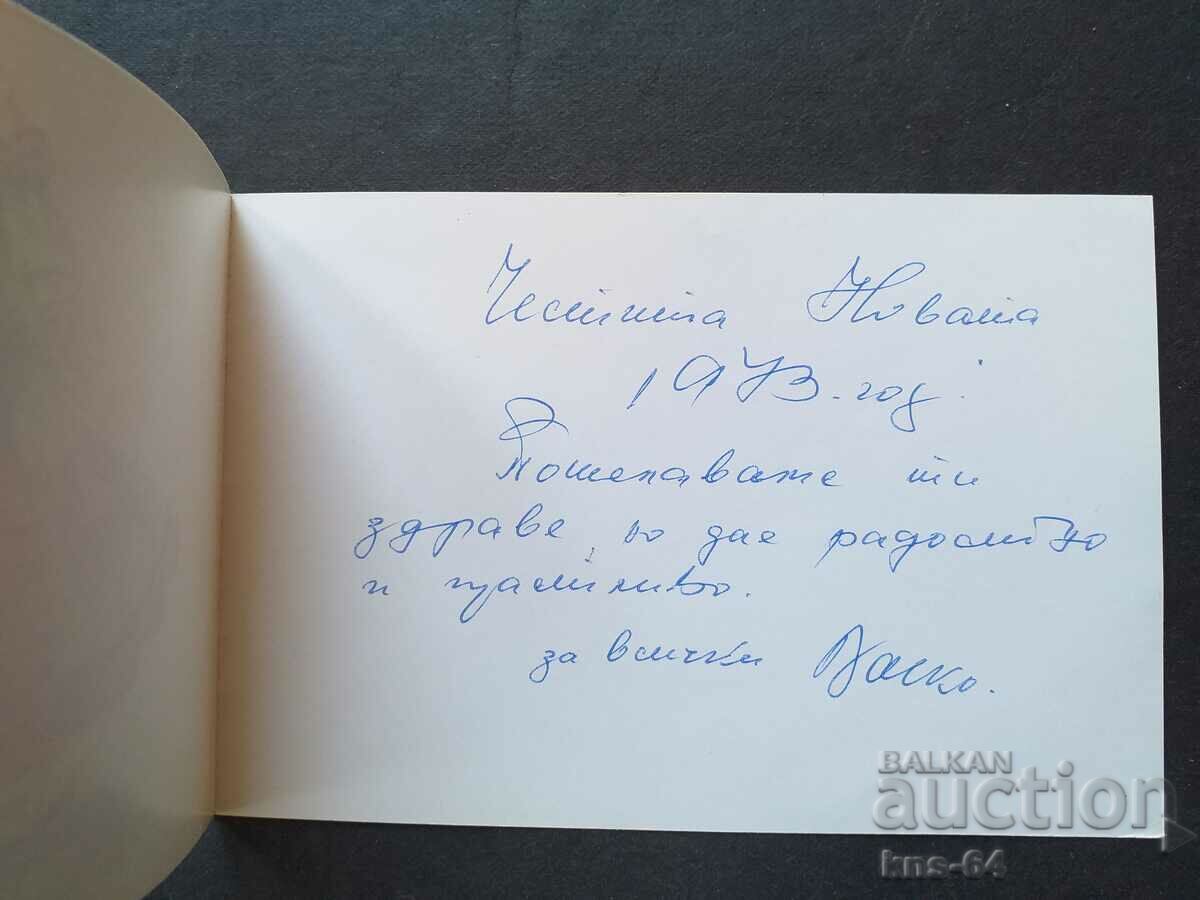 Честита Новата
1973. год.
Пожелаваме ти
здраве, да
и щастливо.
за всички Васко.
BALKAN
auction
kns-64